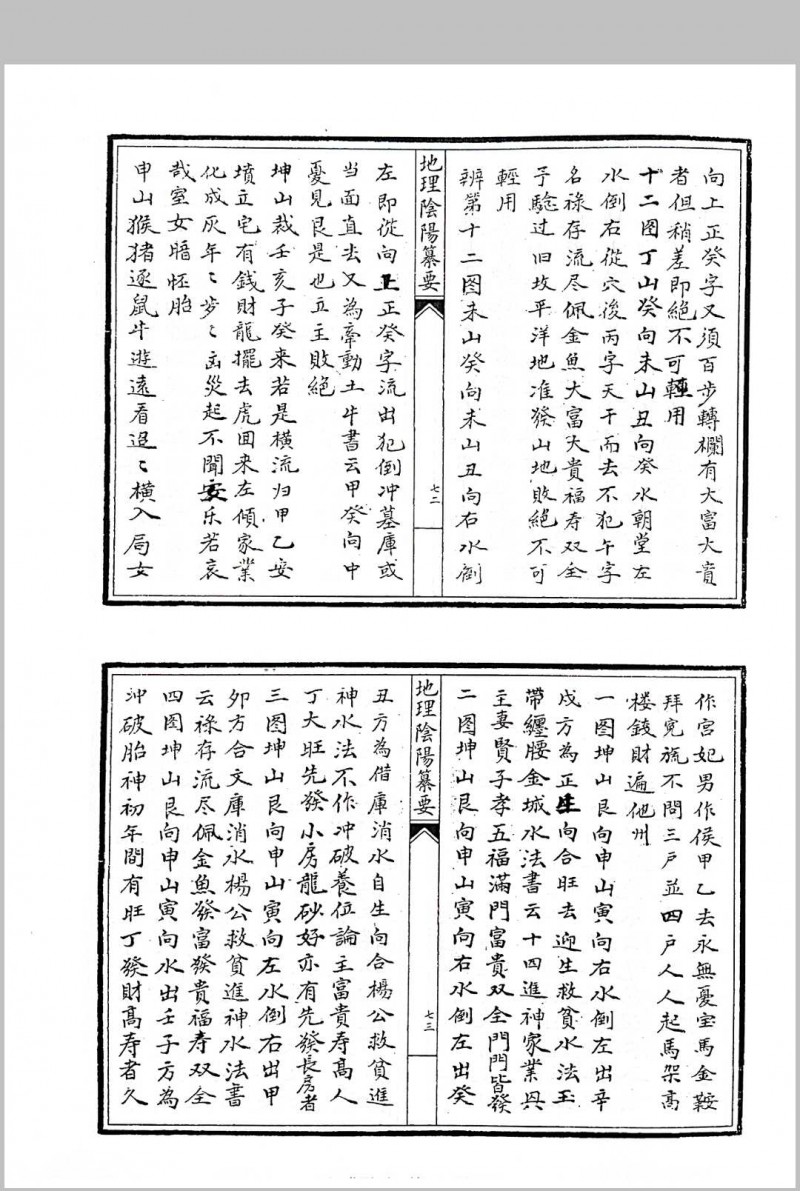 向上正癸字又须百步轉欄有大富大貴
者但稍差即絕不可輕用
十二图丁山癸向未山丑向癸水朝堂左
水倒右從穴後丙字天干而去不犯午字
名祿存流尽佩金魚大富大貴福寿双全
予驗过旧坟平洋地准發山地敗絕不可
輕用
辨第十二图未山癸向未山丑向右水倒
地理陰陽纂要
七二
左即從向上正癸字流出犯倒冲墓庫或
当面直去又為牽動土牛書云甲癸向中
憂見艮是也立主敗絕
坤山裁壬亥子癸来若是横流归甲乙安
墳立宅有錢財龍擺去虎回来左傾家業
化成灰年〻步〻凶災起不聞安乐若哀
哉室女暗怀胎
申山猴猪逐鼠牛遊遠看迢〻横入局女
作宫妃男作侯甲乙去永無憂宝馬金鞍
拜冕旒不問三戸並四戸人人起馬架高
楼錢財遍他州
一图坤山艮向申山寅向右水倒左出辛
戌方為正生向合旺去迎生救貧水法玉
帶纏腰金城水法書云十四進神家業兴
主妻賢子孝五福滿門富貴双全門門皆發
二图坤山艮向申山寅向右水倒左出癸
地理陰陽纂要
七三
丑方為借庫消水自生向合楊公救貧進
神水法不作冲破養位論主富貴寿高人
丁大旺先發小房龍砂好亦有先發長房者
三图坤山艮向申山寅向左水倒右出甲
卯方合文庫消水楊公救貧進神水法書
云祿存流尽佩金魚發富發貴福寿双全
四图坤山艮向申山寅向水出壬子方為
冲破胎神初年間有旺丁發財高寿者久